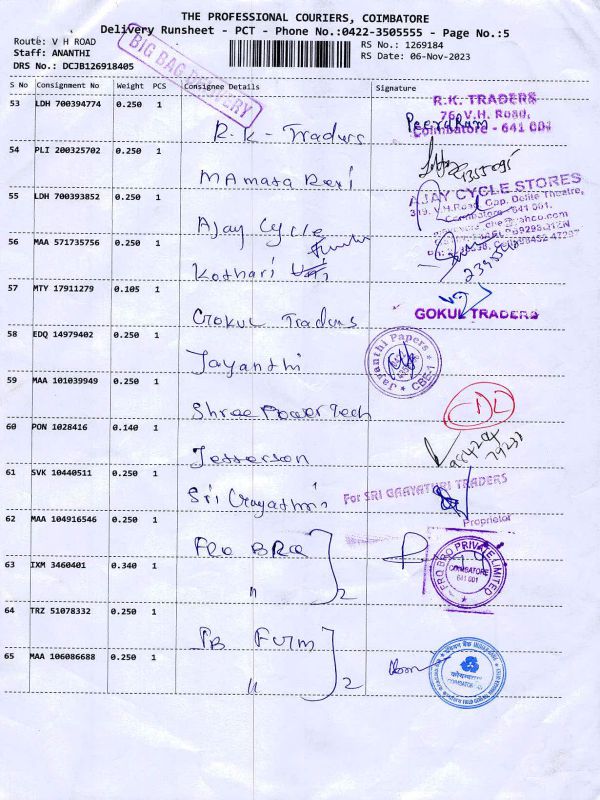 THE PROFESSIONAL COURIERS, COIMBATORE
Delivery Runsheet - PCT - Phone No.:0422-3505555 - Page No.:5
Route: V H ROAD
Staff: ANANTHI
DRS No.: DCJB126918405
RS No.: 1269184
RS Date: 06-Nov-2023
BIG BAG DELIVERY
S No Consignment No Weight PCS Consignee Details Signature
53 LDH 700394774 0.250 1 R.K - Traders
R.K. TRADERS
76, V.H. Road,
Coimbatore - 641 001
54 PLI 200325702 0.250 1 MAmata Devi
55 LDH 700393852 0.250 1 Ajay Cycle
AJAY CYCLE STORES
319, V.H.Road, Opp. Delite Theatre,
Coimbatore - 641 001.
56 MAA 571735756 0.250 1 Kothari
57 MTY 17911279 0.105 1 Gokul Traders
GOKUL TRADERS
58 EDQ 14979402 0.250 1 Jayanthi
Jayanthi Papers
CBE-1
59 MAA 101039949 0.250 1 Shree Power Tech
60 PON 1028416 0.140 1 Jefferson
61 SVK 10440511 0.250 1 Sri Gayathri
For SRI GAAYATHRI TRADERS
Proprietor
62 MAA 104916546 0.250 1 FRO BRO
63 IXM 3460401 0.340 1 " 2
FRO BRO PRIVATE LIMITED
COIMBATORE
641 001
64 TRZ 51078332 0.250 1 PB Furm
65 MAA 106086688 0.250 1 " 2